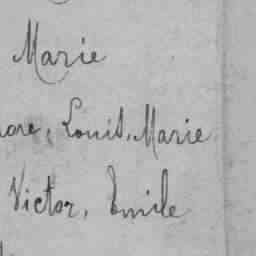 Marie
Louis, Marie
Victor, Emile